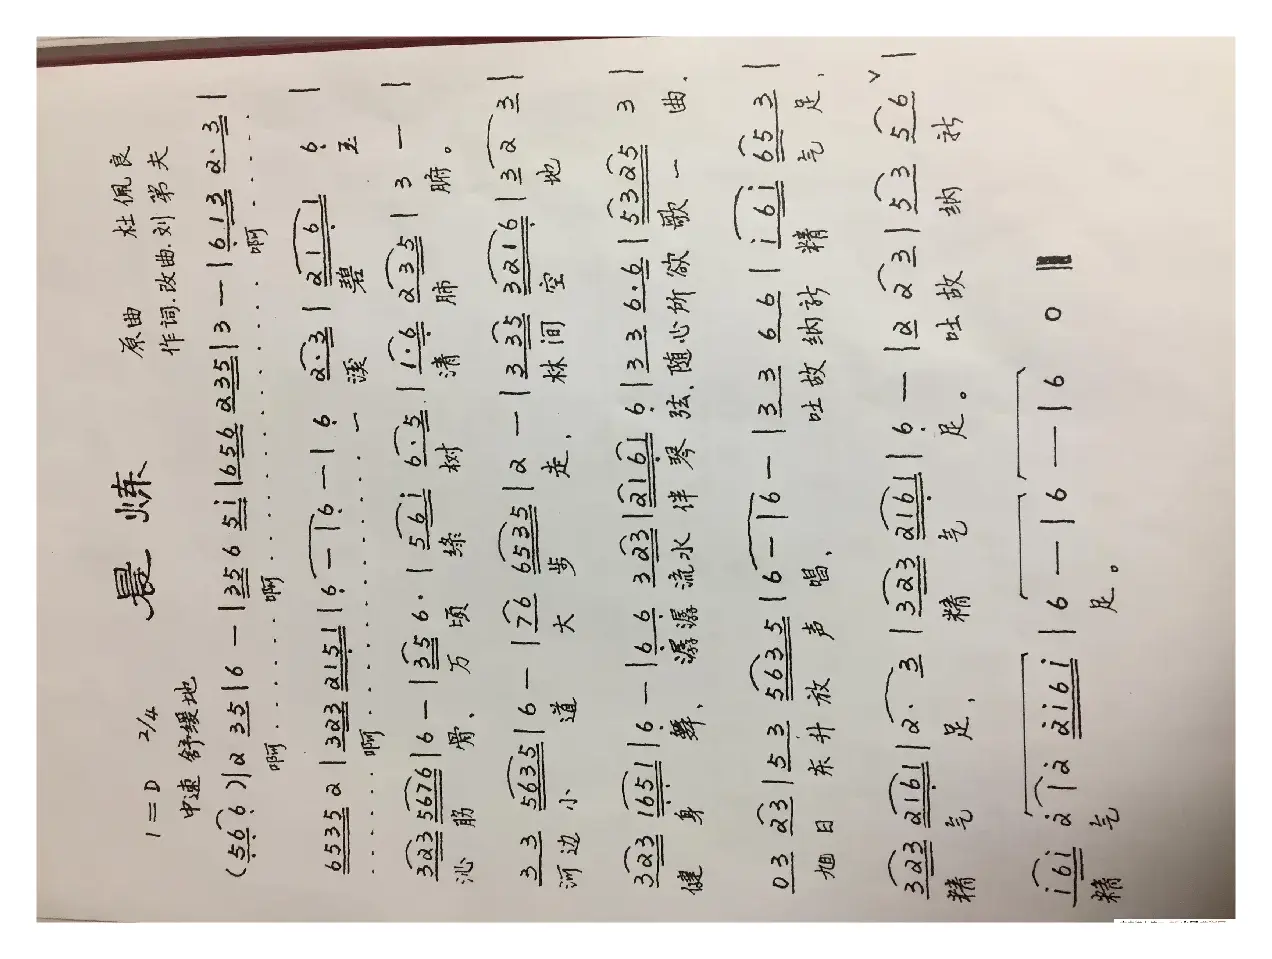 晨炼
1=D 2/4 原曲 杜佩良
中速 舒缓地 作词.改曲.刘第夫
(5 6 6)|2 35|6 —|35 6 5i|656 235|3 —|613 2·3|
啊............啊............啊......
6535 2|323 2151|6 —|6 —|6 2·3|2161 6|
......啊............一 溪 碧 玉
323 5676|6 —|35 6·|561 6·5|1·6 235|3 —|
沁 筋 骨、 万 顷 绿 树 清 肺 腑。
3 3 5635|6 —|76 6535|2 —|335 3216|3 2 3|
河边小 道 大 步 走、 林间 空 地
323 1651|6 —|66 323|2161 6|33 6·6|5325 3|
健 身 舞、 潺潺流水伴 琴 弦、随心所欲歌一 曲.
03 23|53 5635|6 —|6 —|33 66|i6i 653|
旭日东升放 声 唱、 吐故纳新 精 气 足、
323 2161|2· 3|323 2161|6 —|2 23|53 56|
精 气 足、 精 气 足。 吐 故 纳 新
i6i 2|2 2i6i|6 —|6 —|6 0‖
精 气 足。